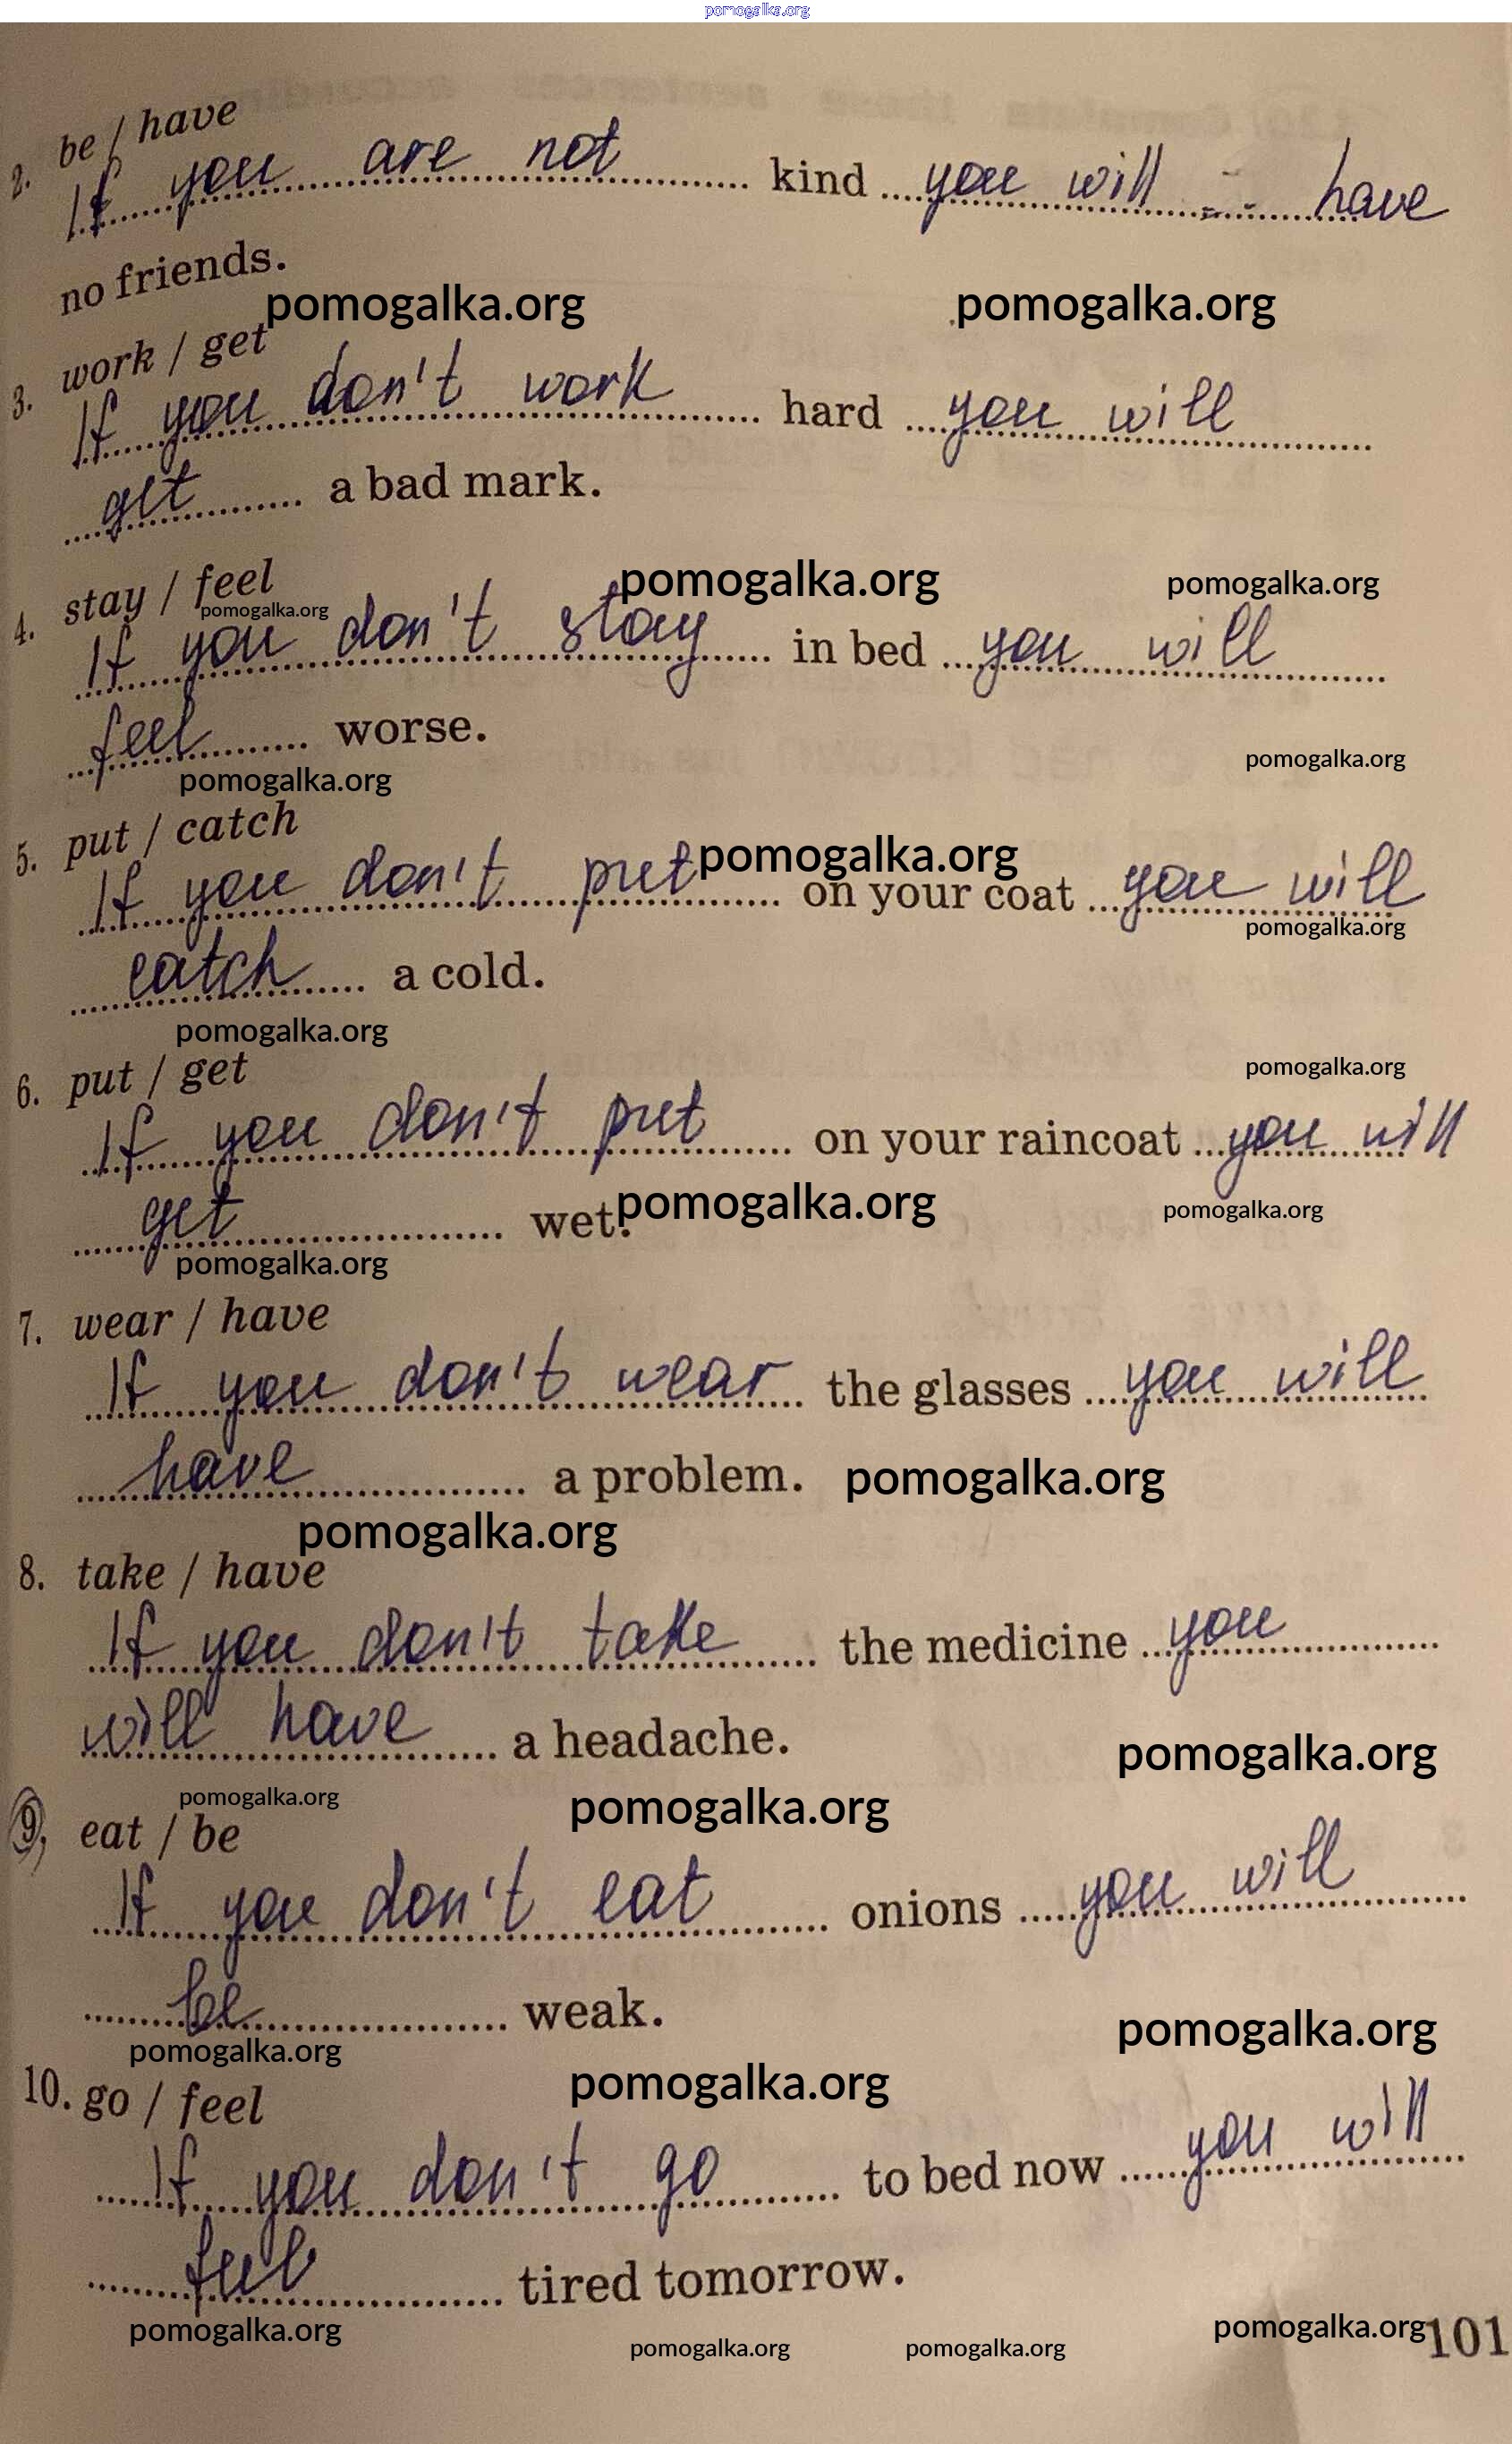 pomogalka.org
2. be / have
If you are not kind you will have
no friends.
pomogalka.org pomogalka.org
3. work / get
If you don't work hard you will
get a bad mark.
pomogalka.org pomogalka.org
4. stay / feel
pomogalka.org
If you don't stay in bed you will
feel worse.
pomogalka.org
pomogalka.org
5. put / catch
pomogalka.org
If you don't put on your coat you will
pomogalka.org
catch a cold.
pomogalka.org
6. put / get
pomogalka.org
If you don't put on your raincoat you will
get wet.
pomogalka.org pomogalka.org
pomogalka.org
7. wear / have
If you don't wear the glasses you will
have a problem.
pomogalka.org
pomogalka.org
8. take / have
If you don't take the medicine you
will have a headache.
pomogalka.org
pomogalka.org pomogalka.org
9. eat / be
If you don't eat onions you will
be weak.
pomogalka.org
pomogalka.org
pomogalka.org
10. go / feel
If you don't go to bed now you will
feel tired tomorrow.
pomogalka.org pomogalka.org pomogalka.org pomogalka.org
101